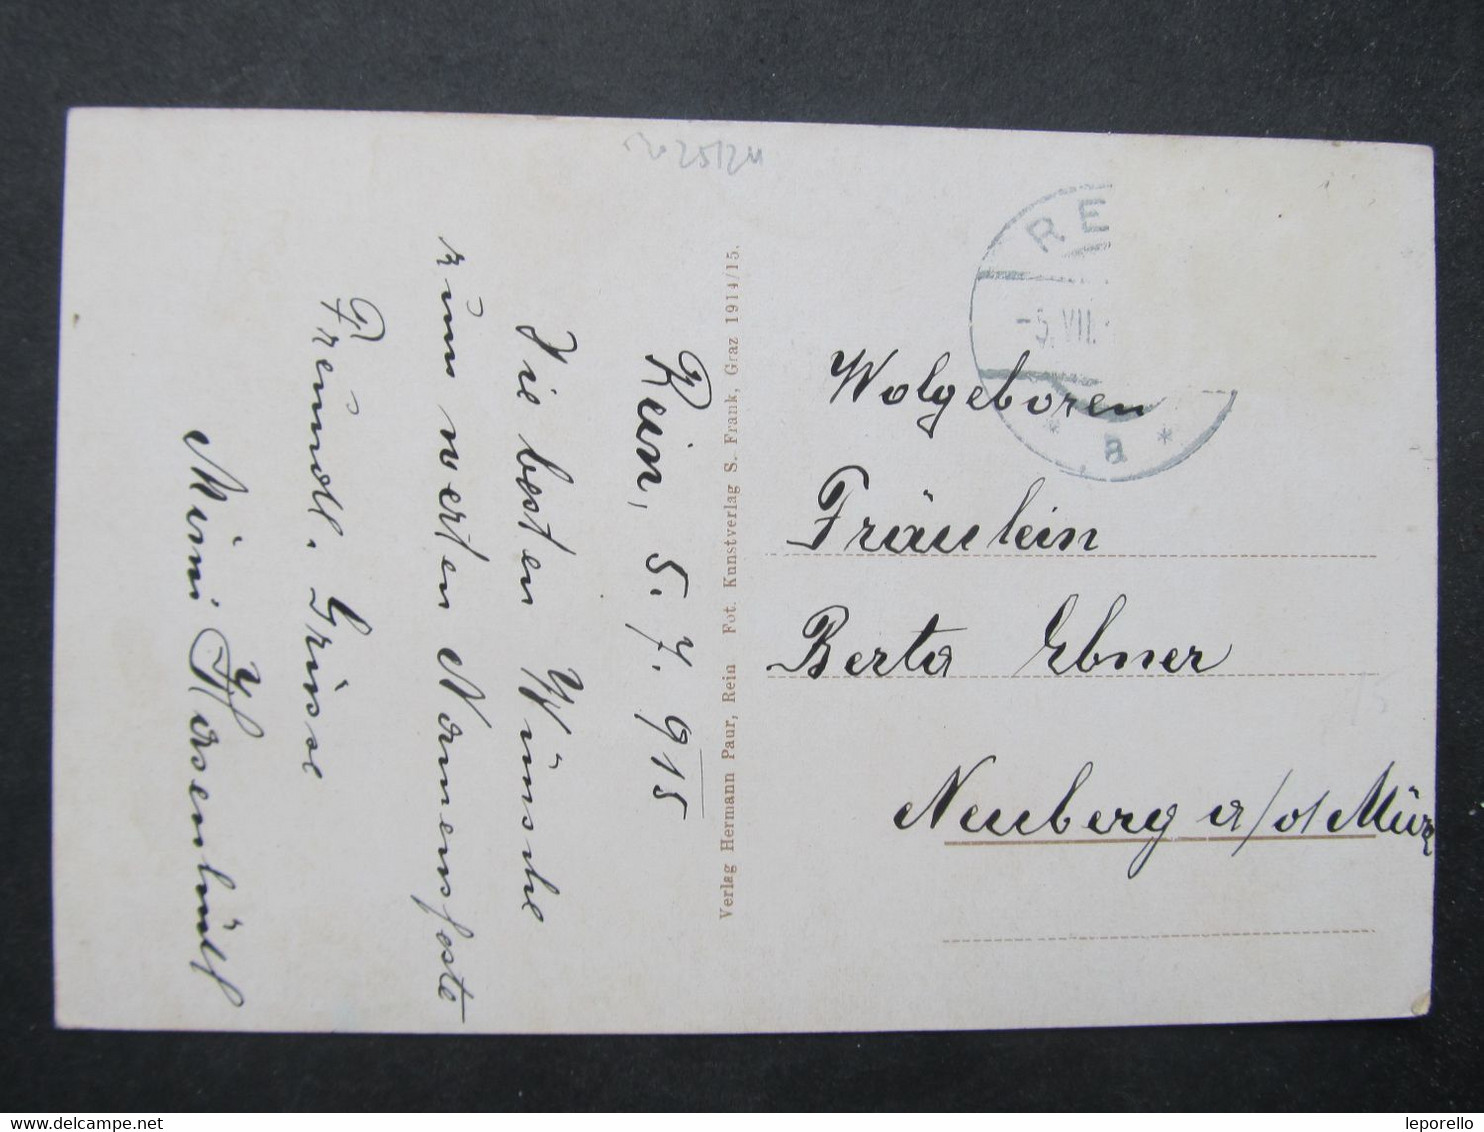 Rein, 5. 7. 915
Die besten Wünsche
zum werten Namensfeste
Freundl. Grüsse
Mimi
Verlag Hermann Paur, Rein Fot. Kunstverlag S. Frank, Graz 1914/15.
RE
-5.VII.
* a *
Wolgeboren
Fräulein
Berta Ebner
Neuberg a/d Mürz
www.delcampe.net
leporello